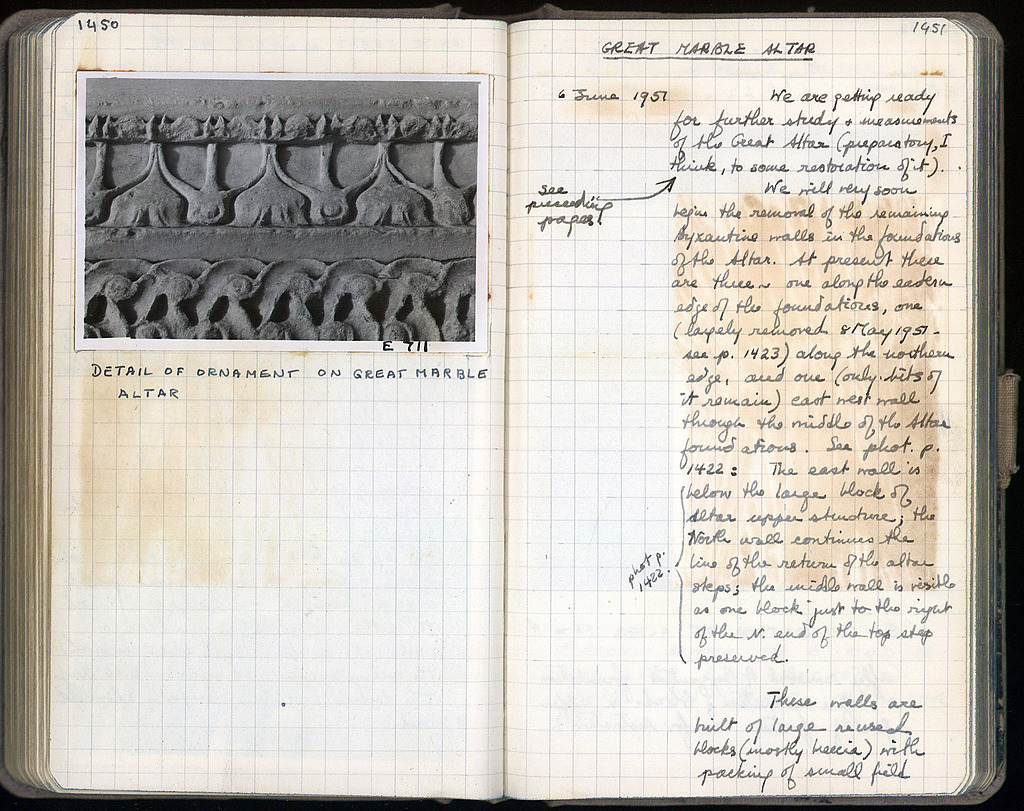 1450
E 711
DETAIL OF ORNAMENT ON GREAT MARBLE
ALTAR
1451
GREAT MARBLE ALTAR
6 June 1951 We are getting ready
for further study + measurements
of the Great Altar (preparatory, I
think, to some restoration of it).
see
preceding
pages.
We will very soon
begin the removal of the remaining
Byzantine walls in the foundations
of the Altar. At present there
are three ~ one along the eastern
edge of the foundations, one
(largely removed 8 May 1951 -
see p. 1423) along the northern
edge, and one (only bits of
it remain) east west wall
through the middle of the Altar
foundations. See phot. p.
1422: The east wall is
below the large block of
altar upper structure; the
North wall continues the
line of the return of the altar
steps; the middle wall is visible
as one block just to the right
of the N. end of the top step
preserved.
phot p.
1422.
These walls are
built of large reused
blocks (mostly breccia) with
packing of small field